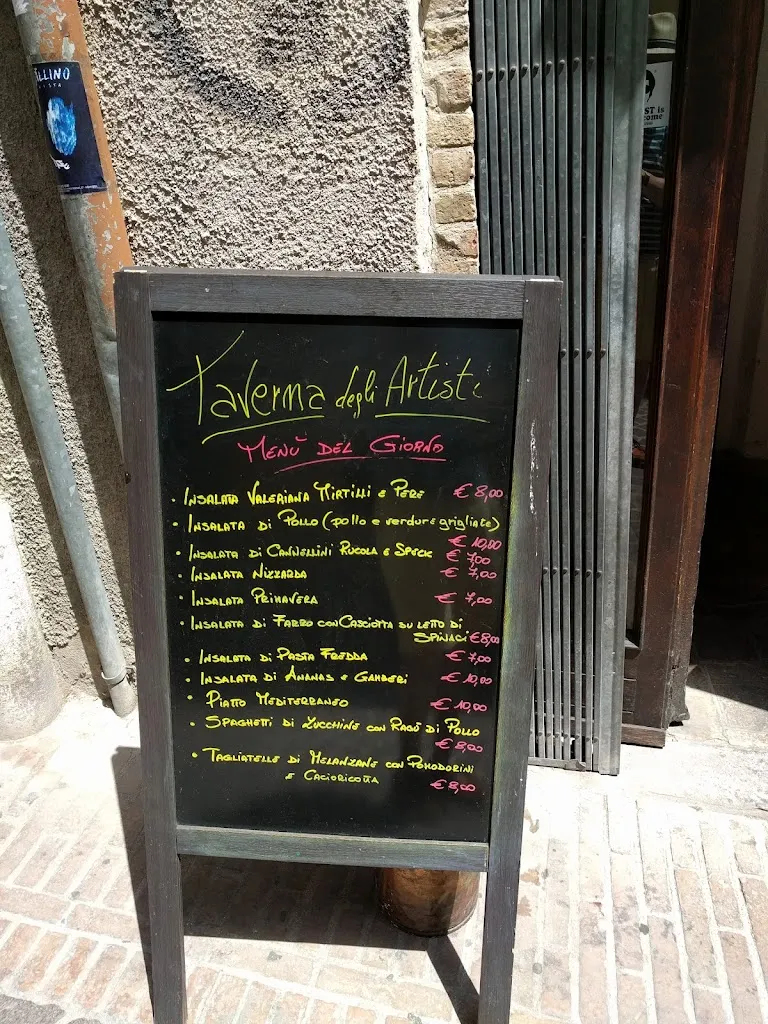 LLINO
Taverna degli Artisti
Menù del Giorno
• Insalata Valeriana Mirtilli e Pere € 8,00
• Insalata di Pollo (pollo e verdure grigliate)
€ 10,00
• Insalata di Cannellini Rucola e Speck € 7,00
• Insalata Nizzarda € 7,00
• Insalata Primavera € 7,00
• Insalata di Farro con Casciotta su letto di
Spinaci € 8,00
• Insalata di Pasta Fredda € 7,00
• Insalata di Ananas e Gamberi € 10,00
• Piatto Mediterraneo € 10,00
• Spaghetti di Zucchine con Ragù di Pollo
€ 8,00
• Tagliatelle di Melanzane con Pomodorini
e Cacioricotta € 8,00